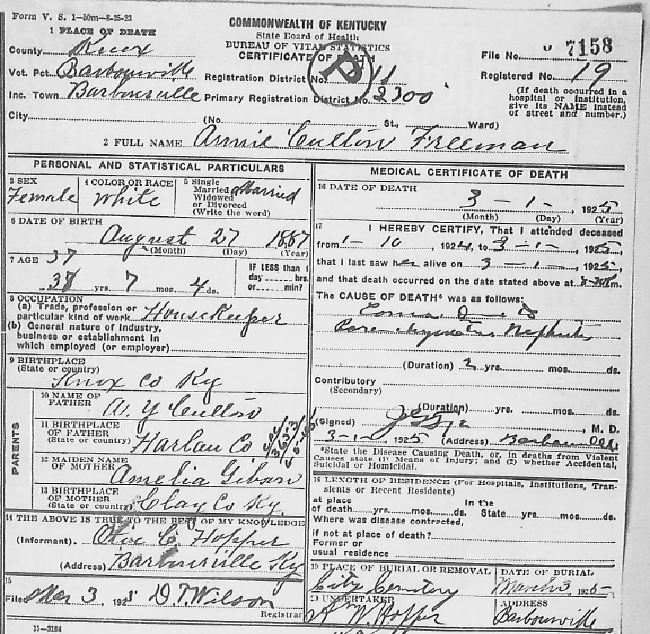 Form V. S. 1-50m-8-25-23
COMMONWEALTH OF KENTUCKY
State Board of Health
BUREAU OF VITAL STATISTICS
CERTIFICATE OF DEATH
1 PLACE OF DEATH
County Knox
Vot. Pct. Barbourville
Inc. Town Barbourville
City (No. St., Ward)
File No. 7158
Registered No. 19
Registration District No. 11
Primary Registration District No. 2300
(If death occurred in a
hospital or institution,
give its NAME instead
of street and number.)
2 FULL NAME Annie Culton Freeman
PERSONAL AND STATISTICAL PARTICULARS
3 SEX
Female
4 COLOR OR RACE
White
5 Single
Married Married
Widowed
or Divorced
(Write the word)
6 DATE OF BIRTH
August 27 1887
(Month) (Day) (Year)
7 AGE 37
37 yrs. 7 mos. 4 ds.
IF LESS than 1
day hrs.
or min?
8 OCCUPATION
(a) Trade, profession or
particular kind of work Housekeeper
(b) General nature of industry,
business or establishment in
which employed (or employer)
9 BIRTHPLACE
(State or country)
Knox Co Ky
PARENTS
10 NAME OF
FATHER
A. Y Culton
11 BIRTHPLACE
OF FATHER
(State or country)
Harlan Co.
12 MAIDEN NAME
OF MOTHER
Amelia Gibson
13 BIRTHPLACE
OF MOTHER
(State or country)
Clay Co Ky.
14 THE ABOVE IS TRUE TO THE BEST OF MY KNOWLEDGE
(Informant) C. Hopper
(Address) Barbourville Ky
15
Filed Mar 3, 192 D. T. Wilson
Registrar
11-3184
MEDICAL CERTIFICATE OF DEATH
16 DATE OF DEATH
3 - 1 - , 1925
(Month) (Day) (Year)
17
I HEREBY CERTIFY, That I attended deceased
from 1 - 10, 1924, to 3 - 1 -, 1925,
that I last saw her alive on 3 - 1 -, 1925,
and that death occurred on the date stated above at m.
The CAUSE OF DEATH* was as follows:
Coma
Parenchymatous Nephritis
(Duration) 2 yrs. mos. ds.
Contributory
(Secondary)
(Duration) yrs. mos. ds.
(Signed) , M. D.
3-1-, 1925 (Address)
*State the Disease Causing Death, or, in deaths from Violent
Causes state (1) Means of Injury; and (2) whether Accidental,
Suicidal or Homicidal.
18 LENGTH OF RESIDENCE (For Hospitals, Institutions, Tran-
sients or Recent Residents)
at place In the
of death yrs. mos. ds. State yrs. mos. ds.
Where was disease contracted,
if not at place of death?
Former or
usual residence
19 PLACE OF BURIAL OR REMOVAL
City Cemetery
DATE OF BURIAL
March 3, 1925
20 UNDERTAKER
W Hopper
ADDRESS
Barbourville